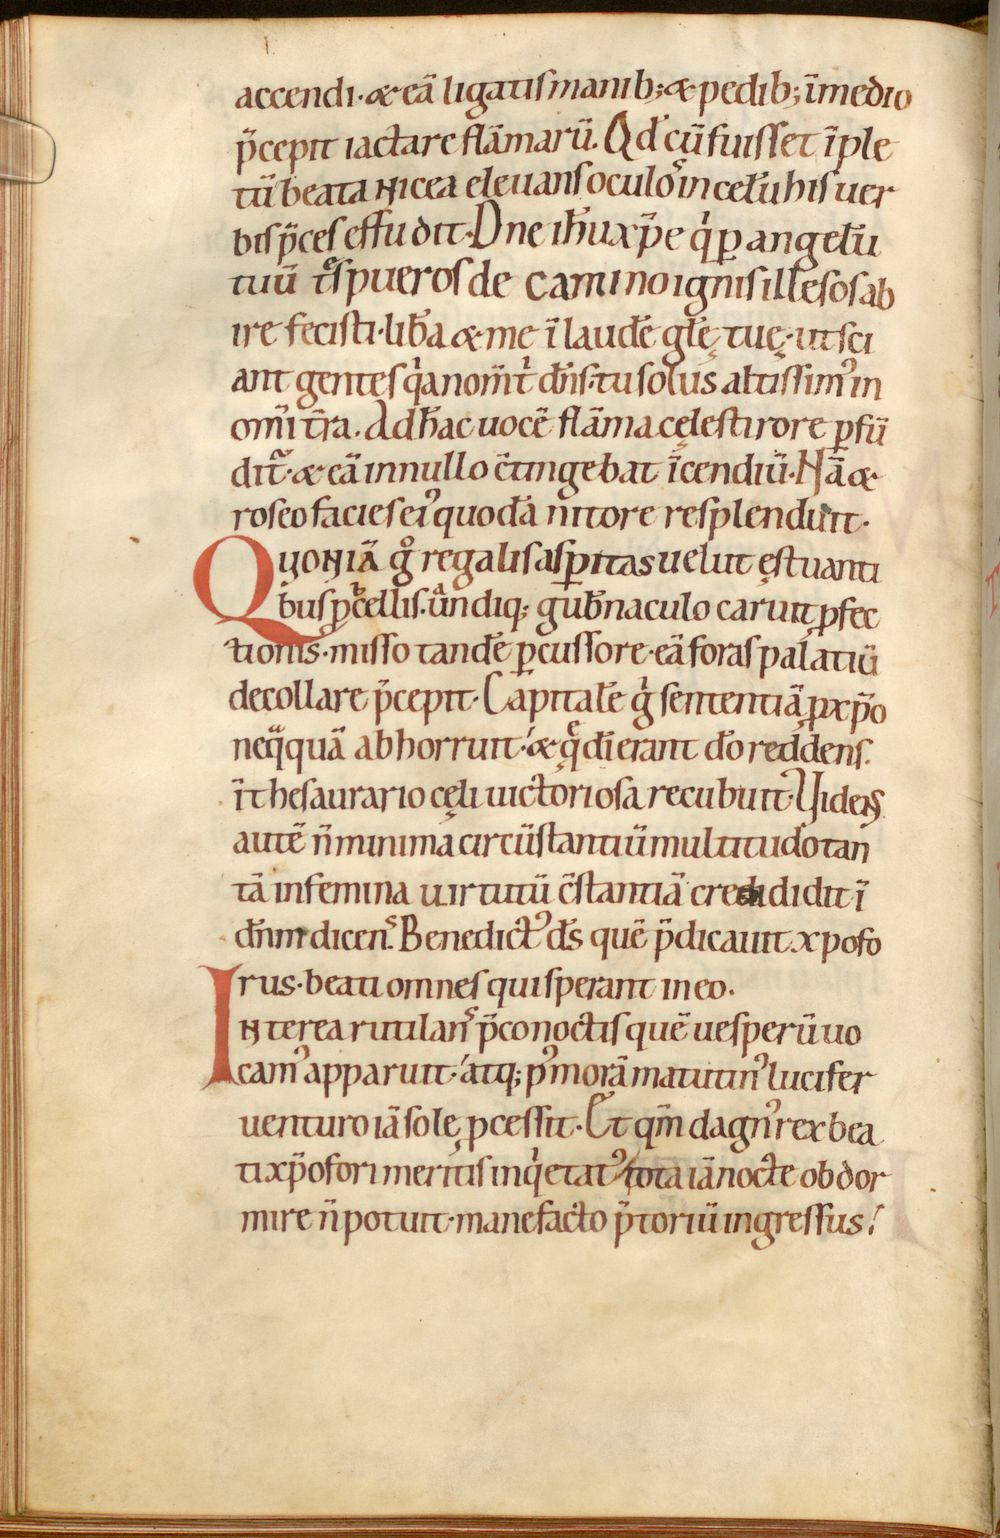 accendi· & eā ligatis manib; & pedib; īmedio
p̄cepit iactare flāmarū. Qđ cū fuisset īple
tū beata Nicea elevans oculoˢ in celū his uer
bis p̄ces effudit· Dn̄e ih̄u xp̄e qⁱ ꝑ angelū
tuū tˢ pueros de camino ignis illesos ab
ire fecisti· lib̄a & me ī laudē gl̄ę tuę· ut sci
ant gentes qⁱa nom̄ tⁱ dn̄s· tu solus altissimꝰ in
om̄i tr̄a. Ad h̄ac uocē flāma cęlesti rore ꝑfū
dit᷑· & eā in nullo c̄tingebat īcendiū· Nā &
roseo facies eiꝰ quodā nitore resplenduit·
Quoniā gͦ regalis asꝑitas uelut ęstuanti
bus ꝓcellis· undiq; gub̄naculo caruit ꝑfec
tionis· misso tandē ꝑcussore· eā foras palatiū
decollare p̄cepit· Capitalē gͦ sententiā ꝓ xp̄o
neqͣquā abhorruit· & qͤ dī erant dō reddens·
ī thesaurario cęli uictoriosa recubuit· Uidens
autē n̄ minima circūstantiū multitudo tan
tā in femina uirtutū c̄stantiā credidit ī
dn̄m dicenˢ· Benedictꝰ dˢ quē p̄dicauit xpofo
rus· beati omnes qui sperant in eo·
Interea rutilanˢ p̄co noctis quē uesperū uo
camꝰ apparuit· atq; pꝰ morā matutinꝰ lucifer
venturo iā sole ꝓcessit· Et qm̄ dagnꝰ rex bea
ti xp̄ofori meritis inqⁱetatꝰ tota iā nocte obdor
mire n̄ potuit· mane facto p̄toriū ingressus!